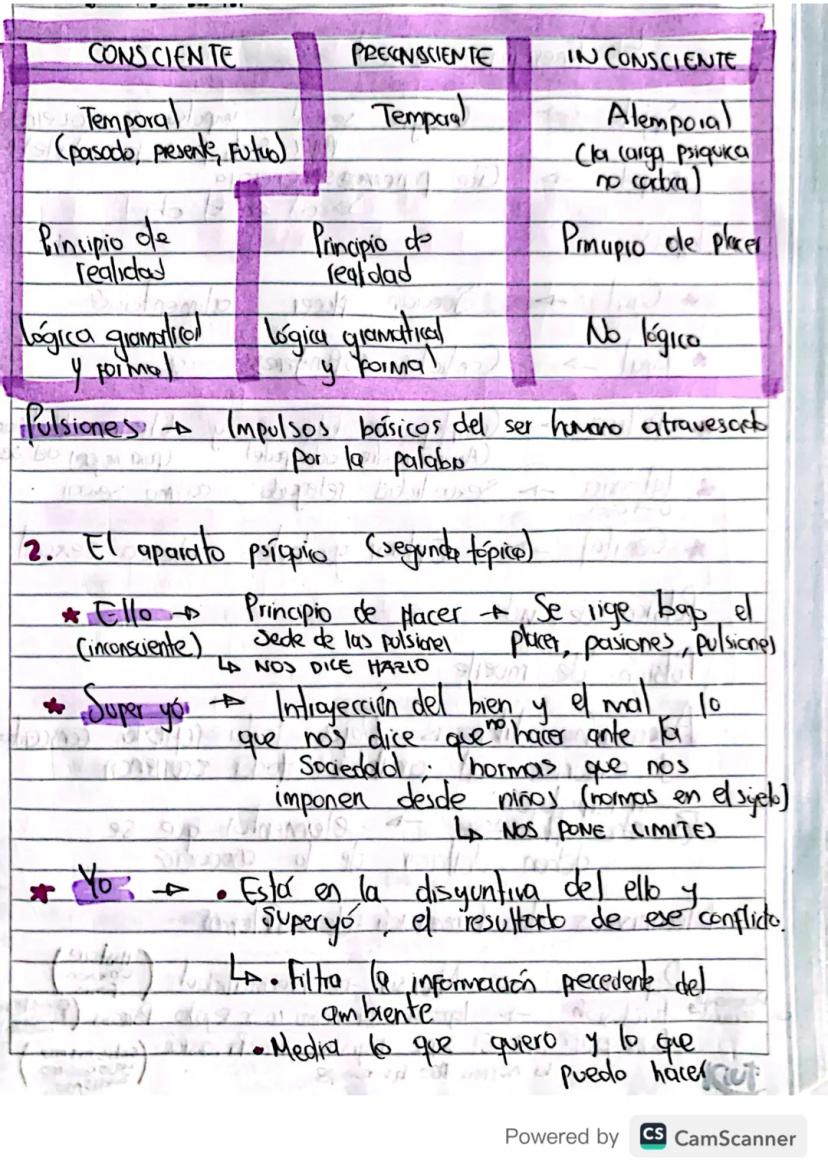 CONSCIENTE PRECONSCIENTE INCONSCIENTE
Temporal Temporal Atemporal
(pasado, presente, Futuro) (la carga psiquica
no cadbra)
Principio de Principio de Principio de placer
realidad realdad
Lógica gramatical Lógica gramatical No lógico
y formal y formal
Pulsiones → Impulsos básicos del ser humano atravesado
por la palabra
2. El aparato psíquico (segunda tópica)
★ Ello → Principio de Placer → Se rige bajo el
(inconsciente) Sede de las pulsiones placer, pasiones, pulsiones
↳ NOS DICE HAZLO
★ Super yó → Introyección del bien y el mal lo
que nos dice que no hacer ante la
Sociedad; normas que nos
imponen desde niños (normas en el sujeto)
↳ NOS PONE LIMITES
★ Yo → • Está en la disyuntiva del ello y
Superyó, el resultado de ese conflicto.
↳ • Filtra la información precedente del
ambiente
• Media lo que quiero y lo que
puedo hacer
Powered by CS CamScanner